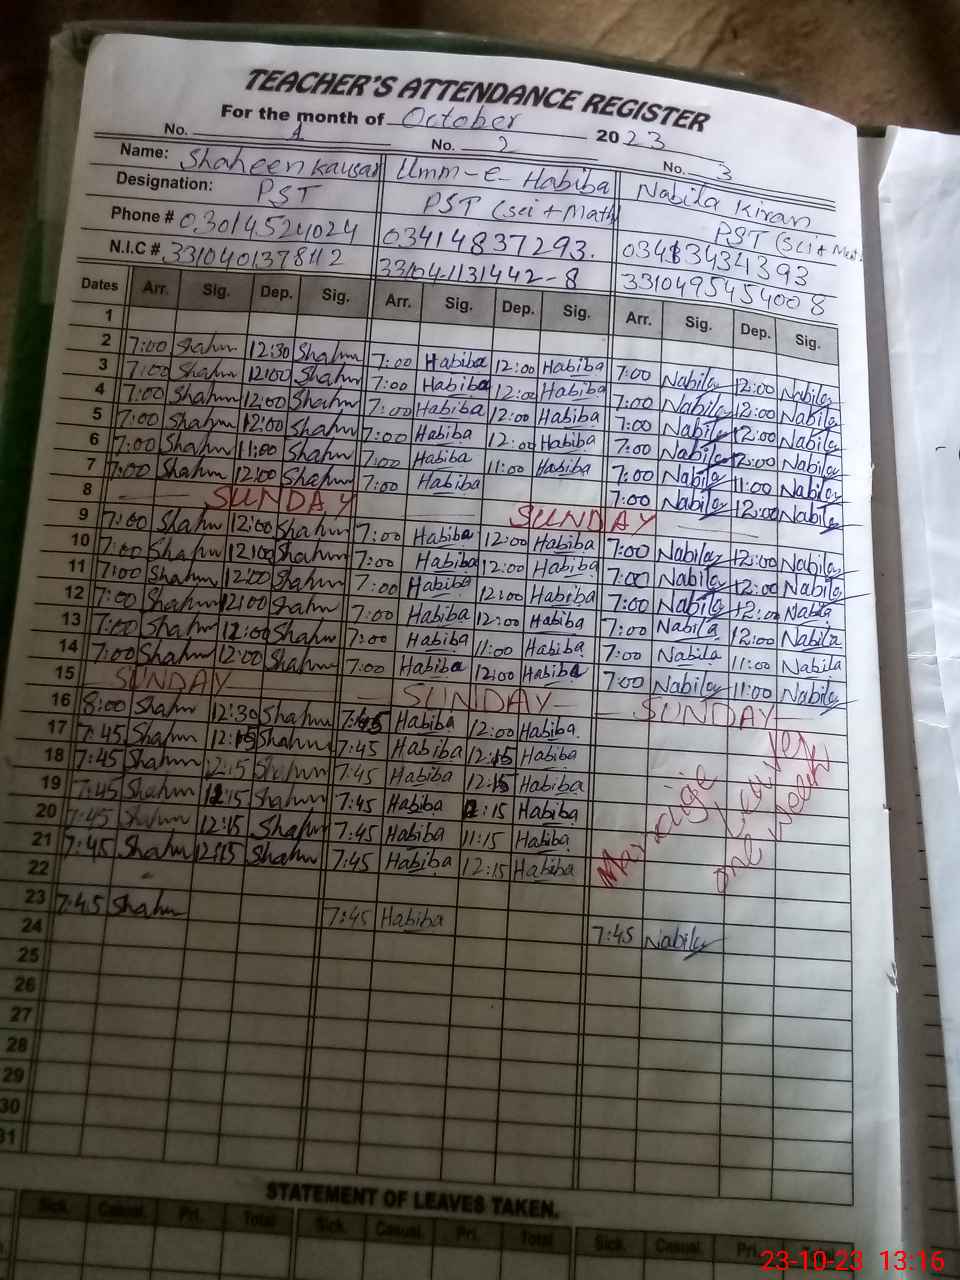 TEACHER'S ATTENDANCE REGISTER
For the month of October 2023
No. 1 No. 2 No. 3
Name: Shaheen Kausar Umm-e-Habiba Nabila Kiran
Designation: PST PST (sci + Math) PST (Sci +
Phone # 03014524024 03414837293. 03483434393
N.I.C # 3310401378112 33104-1131442-8 3310495454008
Dates Arr. Sig. Dep. Sig. Arr. Sig. Dep. Sig. Arr. Sig. Dep. Sig.
1
2 7:00 Shahm 12:30 Shahm 7:00 Habiba 12:00 Habiba 7:00 Nabila 12:00 Nabila
3 7:00 Shahm 12:00 Shahm 7:00 Habiba 12:00 Habiba 7:00 Nabila 12:00 Nabila
4 7:00 Shahm 12:00 Shahm 7:00 Habiba 12:00 Habiba 7:00 Nabila 12:00 Nabila
5 7:00 Shahm 12:00 Shahm 7:00 Habiba 12:00 Habiba 7:00 Nabila 12:00 Nabila
6 7:00 Shahm 11:00 Shahm 7:00 Habiba 11:00 Habiba 7:00 Nabila 11:00 Nabila
7 7:00 Shahm 12:00 Shahm 7:00 Habiba 7:00 Nabila 12:00 Nabila
8 SUNDAY SUNDAY
9 7:00 Shahm 12:00 Shahm 7:00 Habiba 12:00 Habiba 7:00 Nabila 12:00 Nabila
10 7:00 Shahm 12:00 Shahm 7:00 Habiba 12:00 Habiba 7:00 Nabila 12:00 Nabila
11 7:00 Shahm 12:00 Shahm 7:00 Habiba 12:00 Habiba 7:00 Nabila 12:00 Nabila
12 7:00 Shahm 12:00 Shahm 7:00 Habiba 12:00 Habiba 7:00 Nabila 12:00 Nabila
13 7:00 Shahm 12:00 Shahm 7:00 Habiba 11:00 Habiba 7:00 Nabila 11:00 Nabila
14 7:00 Shahm 12:00 Shahm 7:00 Habiba 12:00 Habiba 7:00 Nabila 11:00 Nabila
15 SUNDAY SUNDAY SUNDAY
16 8:00 Shahm 12:30 Shahm 7:45 Habiba 12:00 Habiba.
17 7:45 Shahm 12:15 Shahm 7:45 Habiba 12:15 Habiba
18 7:45 Shahm 12:15 Shahm 7:45 Habiba 12:15 Habiba
19 7:45 Shahm 12:15 Shahm 7:45 Habiba 12:15 Habiba
20 7:45 Shahm 12:15 Shahm 7:45 Habiba 11:15 Habiba
21 7:45 Shahm 12:15 Shahm 7:45 Habiba 12:15 Habiba
Marraige Leaves
one week
22
23 7:45 Shahm 7:45 Habiba 7:45 Nabila
24
25
26
27
28
29
30
31
STATEMENT OF LEAVES TAKEN.
Sick. Casual. Pri. Total Sick. Casual. Pri. Total Sick. Casual. Pri.
23-10-23 13:16